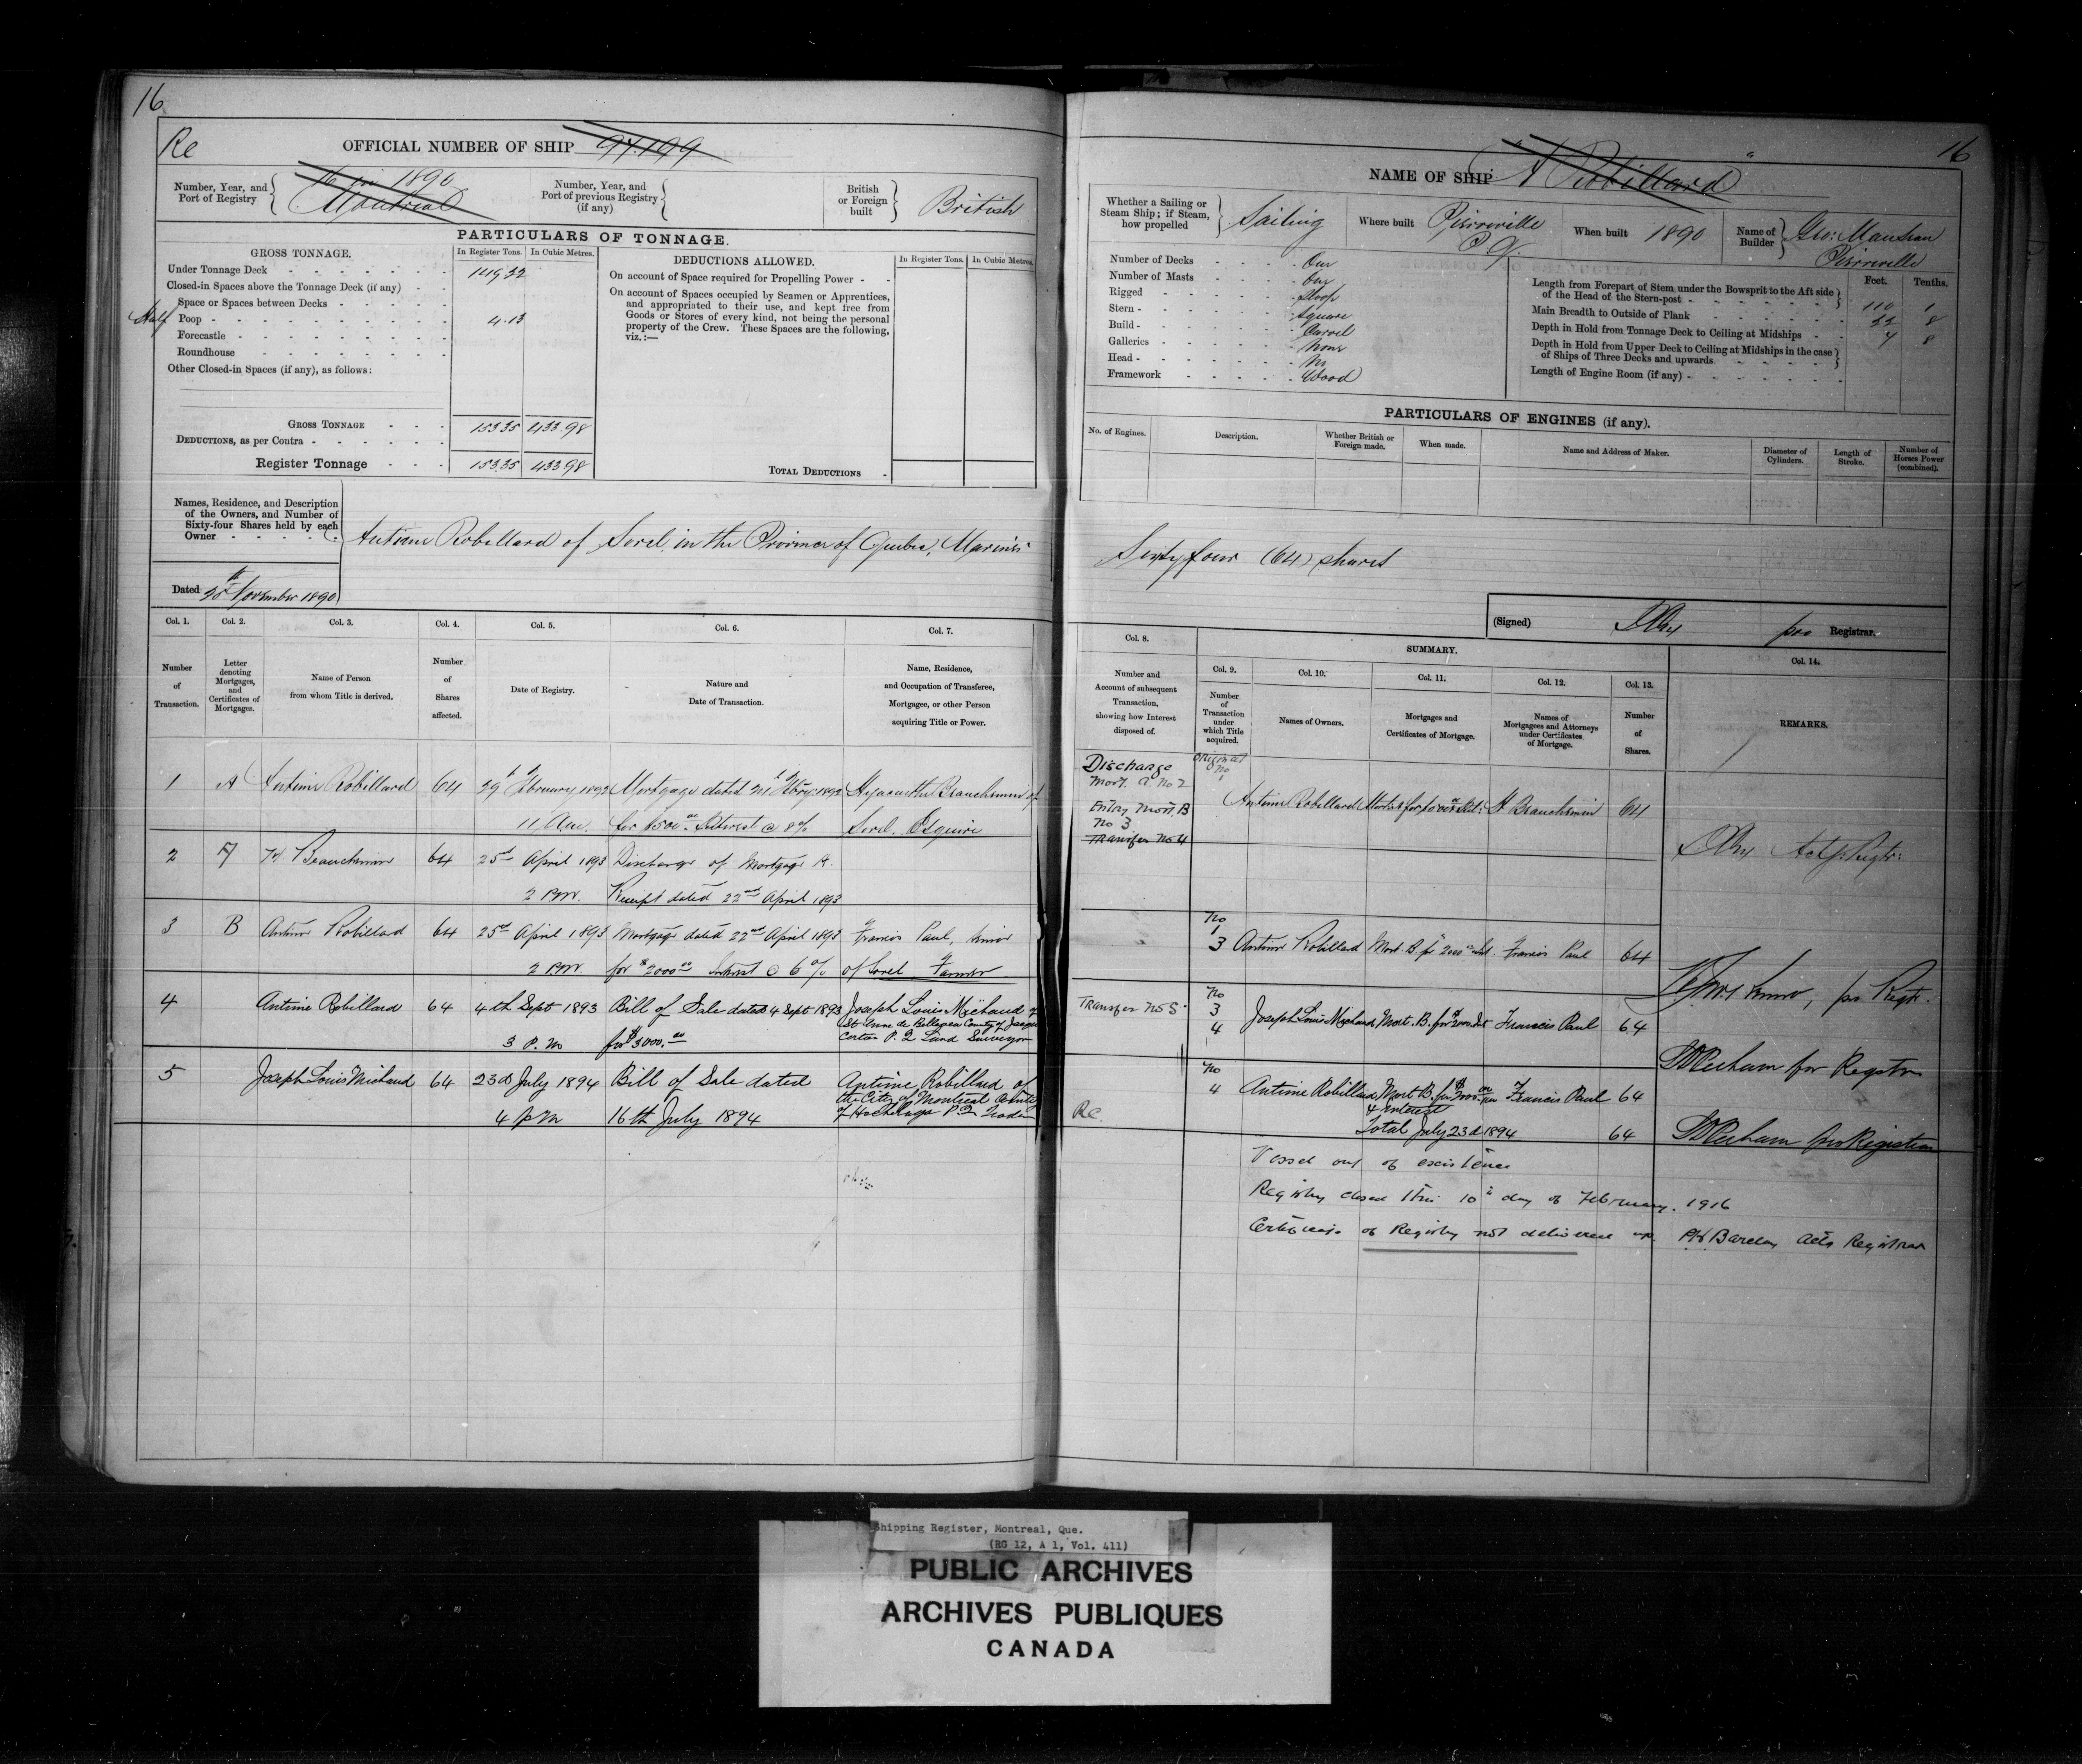 16
Re
OFFICIAL NUMBER OF SHIP 97.199
Number, Year, and Port of Registry
16 in 1890
Montreal
Number, Year, and Port of previous Registry (if any)
British or Foreign built
British
PARTICULARS OF TONNAGE.
GROSS TONNAGE.
In Register Tons.
In Cubic Metres.
Under Tonnage Deck 149.22
Closed-in Spaces above the Tonnage Deck (if any)
Space or Spaces between Decks
Half Poop 4.13
Forecastle
Roundhouse
Other Closed-in Spaces (if any), as follows:
GROSS TONNAGE 153.35 433.98
DEDUCTIONS, as per Contra
Register Tonnage 153.35 433.98
DEDUCTIONS ALLOWED.
In Register Tons.
In Cubic Metres.
On account of Space required for Propelling Power
On account of Spaces occupied by Seamen or Apprentices,
and appropriated to their use, and kept free from
Goods or Stores of every kind, not being the personal
property of the Crew. These Spaces are the following,
viz.:—
TOTAL DEDUCTIONS
Names, Residence, and Description
of the Owners, and Number of
Sixty-four Shares held by each
Owner
Antime Robillard of Sorel, in the Province of Quebec, Mariner
Dated November 1890
Col. 1.
Col. 2.
Col. 3.
Col. 4.
Col. 5.
Col. 6.
Col. 7.
Number of Transaction.
Letter denoting Mortgages, and Certificates of Mortgages.
Name of Person from whom Title is derived.
Number of Shares affected.
Date of Registry.
Nature and Date of Transaction.
Name, Residence, and Occupation of Transferee, Mortgagee, or other Person acquiring Title or Power.
1 A Antime Robillard 64 29th February 1892 Mortgage dated Hyacinthe Beauchemin of
11 Am. for $500.00 Interest @ 8% Sorel. Esquire
2 A H Beauchemin 64 25th April 1893 Discharge of Mortgage A.
2 P.M. Receipt dated 22nd April 1893
3 B Antime Robillad 64 25th April 1893 Mortgage dated 22nd April 1893 Francis Paul, Senior
2 P.M. for $2000.00 Interest @ 6% of Sorel Farmer
4 Antime Robillard 64 4th Sept 1893 Bill of Sale dated 4 Sept 1893 Joseph Louis Michaud of
Ste Anne de Bellevue County of Jacques
3 P.M. for $3000.00 Cartier P.Q Land Surveyor
5 Joseph Louis Michaud 64 23d July 1894 Bill of Sale dated Antime Robillard of
the City of Montreal County
4 PM 16th July 1894 of Hochelaga P.Q Trader
16
NAME OF SHIP "A Robillard"
Whether a Sailing or Steam Ship; if Steam, how propelled
Sailing
Where built
Pierreville P.Q.
When built 1890
Name of Builder
Geo: Manseau
Pierreville
Number of Decks One
Number of Masts One
Rigged Sloop
Stern Square
Build Carvel
Galleries None
Head No
Framework Wood
Feet.
Tenths.
Length from Forepart of Stem under the Bowsprit to the Aft side of the Head of the Stern-post 110 1
Main Breadth to Outside of Plank 22 8
Depth in Hold from Tonnage Deck to Ceiling at Midships 7 8
Depth in Hold from Upper Deck to Ceiling at Midships in the case of Ships of Three Decks and upwards
Length of Engine Room (if any)
PARTICULARS OF ENGINES (if any).
No. of Engines.
Description.
Whether British or Foreign made.
When made.
Name and Address of Maker.
Diameter of Cylinders.
Length of Stroke.
Number of Horses Power (combined).
Sixty four (64) shares
(Signed) pro Registrar.
Col. 8.
SUMMARY.
Col. 9.
Col. 10.
Col. 11.
Col. 12.
Col. 13.
Col. 14.
Number and Account of subsequent Transaction, showing how Interest disposed of.
Number of Transaction under which Title acquired.
Names of Owners.
Mortgages and Certificates of Mortgage.
Names of Mortgagees and Attorneys under Certificates of Mortgage.
Number of Shares.
REMARKS.
Discharge
Mort. A No 2
Entry Mort. B
No 3
Transfer No 4
Original
No
1
Antime Robillard H Beauchemin 64
Actg. Regtr:
No
1
3 Antime Robillard Mort. B. for 2000 Int. Francis Paul 64
pro Regtr.
Transfer No 5
No
3
4 Joseph Louis Michaud Mort. B. for $2000. Int Francis Paul 64
for Registrar
Re.
No
4 Antime Robillard Mort B. for $2000 Francis Paul 64
& interest
Total July 23d 1894 64
pro Registrar
Vessel out of existence
Registry closed this 10th day of February. 1916
Certificate of Registry not delivered up. Barclay Actg Registrar
Shipping Register, Montreal, Que.
(RG 12, A 1, Vol. 411)
PUBLIC ARCHIVES
ARCHIVES PUBLIQUES
CANADA